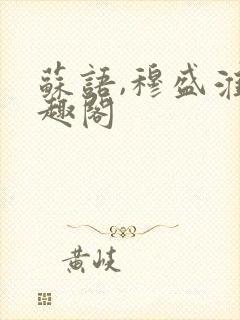 蘇語,穆盛淮
趣閣
黃岐